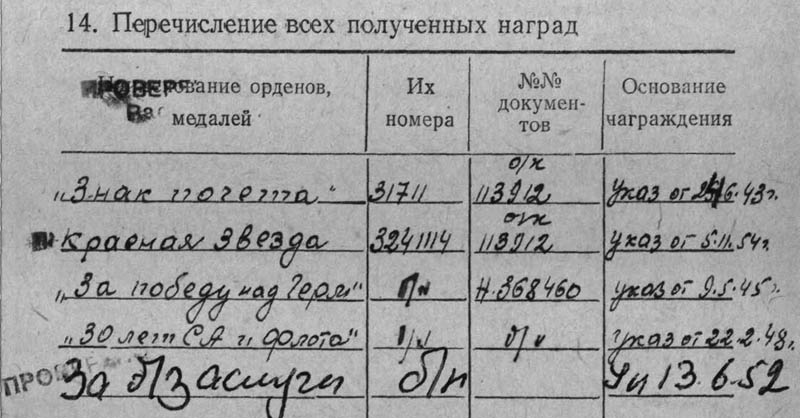 14. Перечисление всех полученных наград
Наименование орденов, медалей Их номера №№ документов Основание награждения
о/к о/к
„Знак почета" 31711 113912 указ от 6.43г.
Красная Звезда 3241114 113912 указ от 5.11.54г.
„За победу над Герм" б/н Н.368460 указ от 9.5.45г.
„30 лет СА и Флота" б/н б/н указ от 22.2.48г.
За б/заслуги б/н Ук 13.6.52